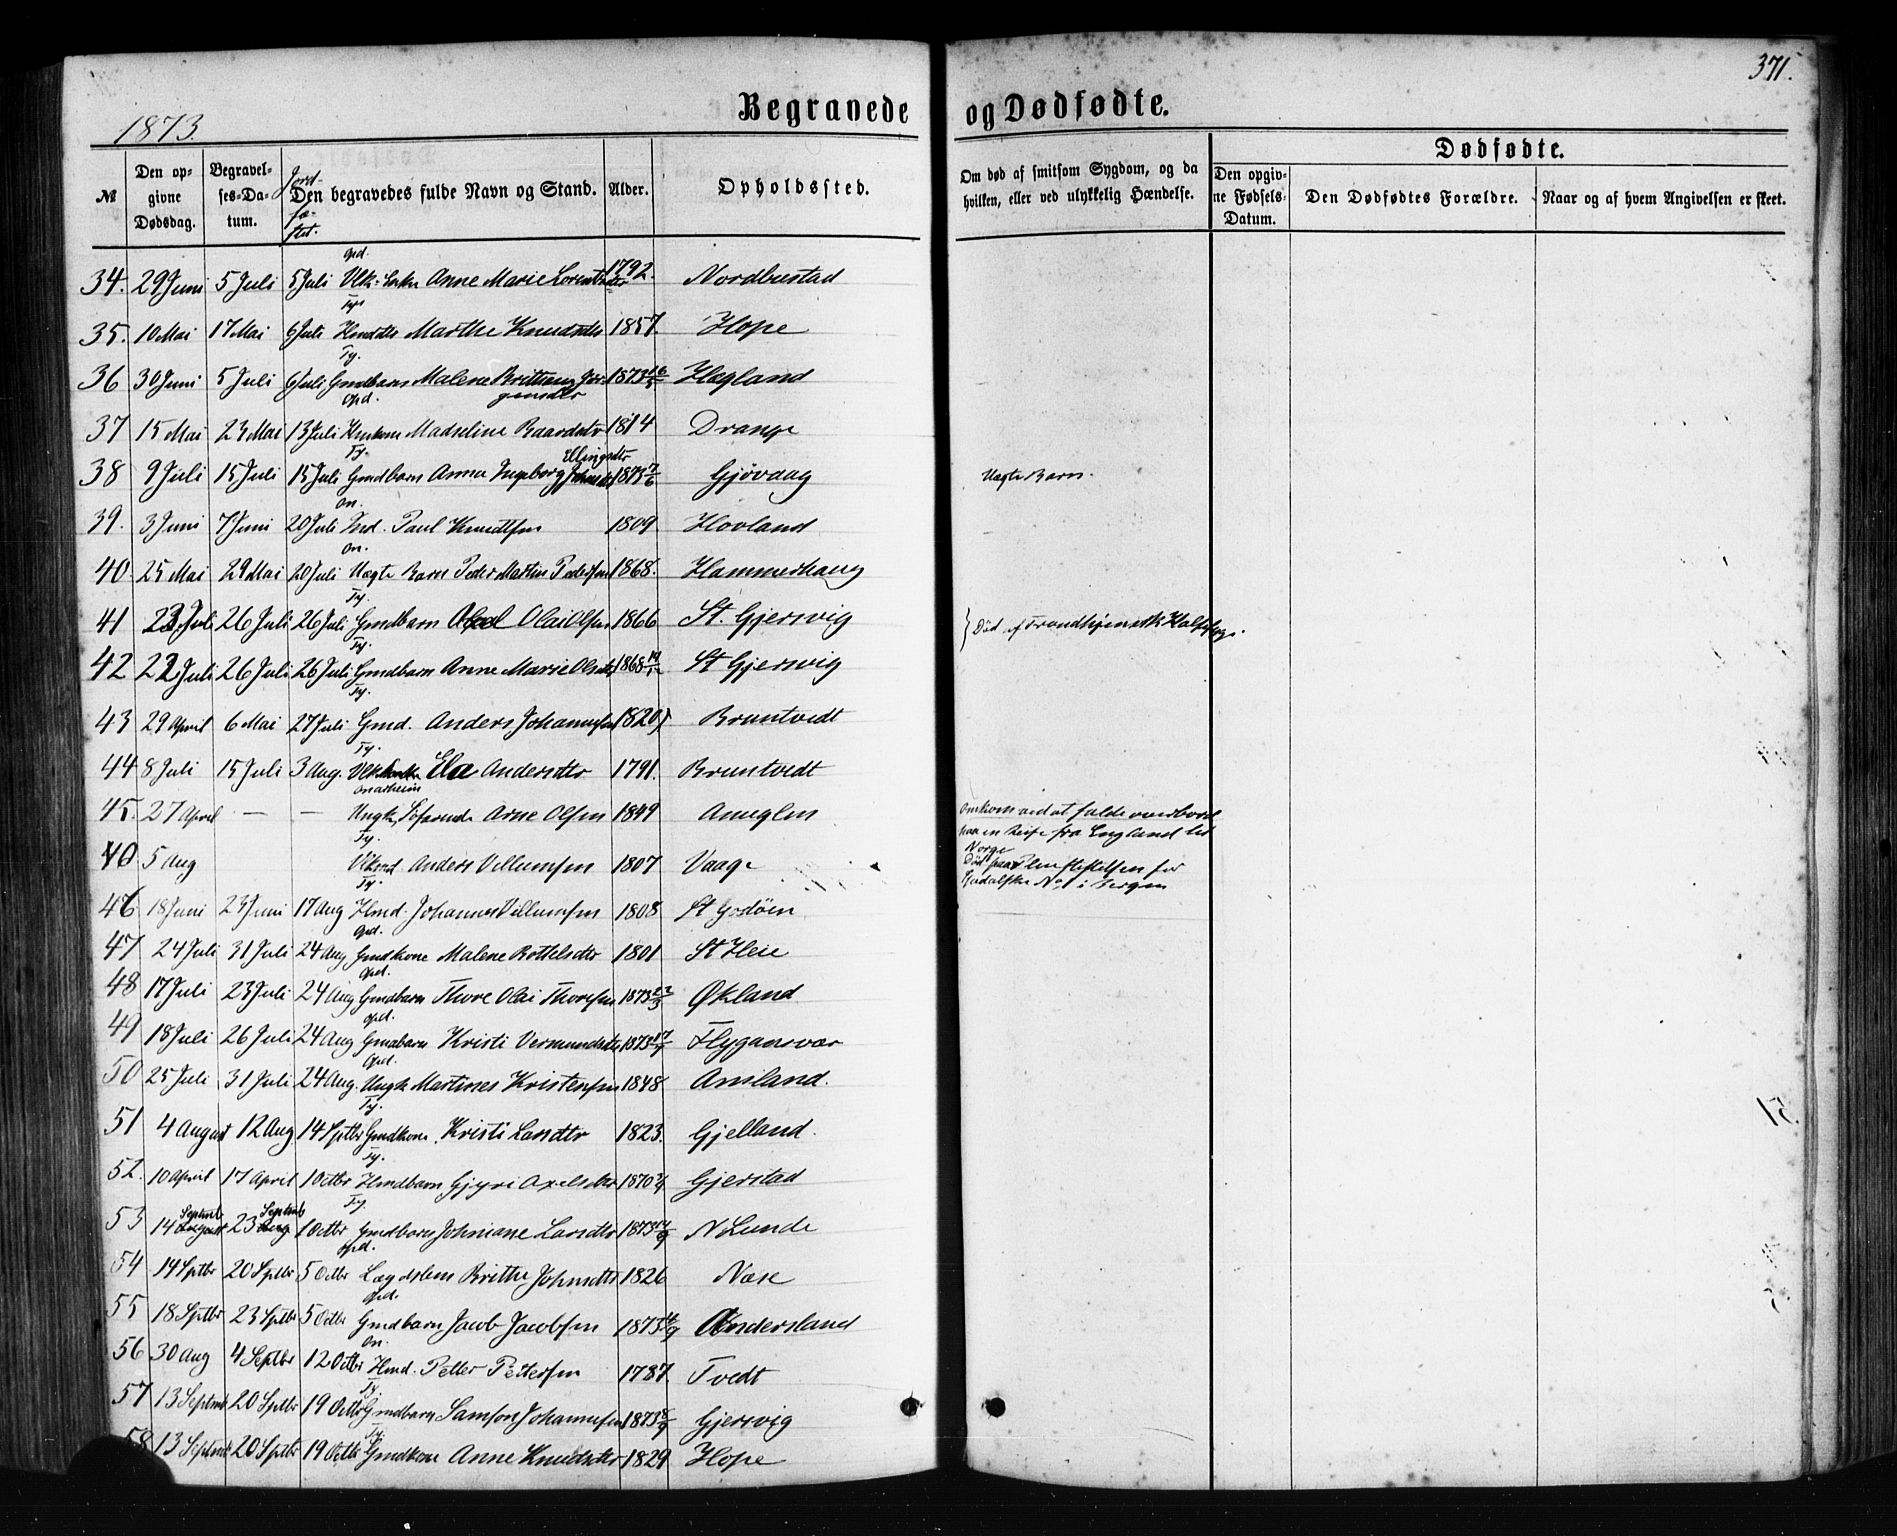 371.
Begravede og Dødfødte.
1873.
Dødfødte.
№
Den opgivne Dødsdag.
Begravelses-Datum.
Jordfæstet.
Den begravedes fulde Navn og Stand.
Alder.
Opholdssted.
Om død af smitsom Sygdom, og da hvilken, eller ved ulykkelig Hændelse.
Den opgivne Fødsels-Datum.
Den Dødfødtes Forældre.
Naar og af hvem Angivelsen er skeet.
Opd.
34. 29 Juni 5 Juli 5 Juli Anne Marie 1792. Nordbustad
Ty.
35. 10 Mai 17 Mai 6 Juli Marthe Knudsdtr 1857. Hope
Ty.
36 30 Juni 5 Juli 6 Juli Gmdbarn Malene 1873 Hægland
Opd.
37 15 Mai 23 Mai 13 Juli Madseline Baardsdtr 1814 Drange
Ty. Ellingsdtr
38 9 Juli 15 Juli 15 Juli Gmdbarn Anna Ingeborg 1873 7/6 Gjøvaag Uægte Barn.
On.
39. 3 Juni 7 Juni 20 Juli Ind. Paul Knudtsen 1809 Hovland
On.
40 25 Mai 29 Mai 20 Juli Uægte Barn Peder Martin Pedersen 1868. Hammerhaug
Ty.
41 23 Juli 26 Juli 26 Juli Gmdbarn Olai Olsen 1866 St. Gjersvig } Død af Trondhjemsk Halssyge.
Ty.
42 22 Juli 26 Juli 26 Juli Gmdbarn Anne Marie Olsdtr 1868 St Gjersvig
Ty.
43 29 April 6 Mai 27 Juli Gmd. Anders Johannesen 1820 Bruntvedt
Ty.
44 8 Juli 15 Juli 3 Aug. Ela Andersdtr 1791. Bruntvedt
Onarheim
45. 27 April — — Ungk, Søfarende Arne Olsen 1849 Anuglen Omkom ved at falde overbord
paa en Reise fra England til
Norge
Ty.
40 5 Aug Anders Villumsen 1807 Vaage Død paa Pleiestiftelsen for
Spedalske No 1 i Bergen
Ty.
46 18 Juni 23 Juni 17 Aug Hmd. Johannes Villumsen 1808 St Godøen
Opd.
47 24 Juli 31 Juli 24 Aug Gmdkone Malene Bottelsdtr 1801 St Heie
Opd.
48 17 Juli 23 Juli 24 Aug Gmdbarn Thore Olai Thoresen 1873 22/3 Økland
Opd.
49 18 Juli 26 Juli 24 Aug Gmdbarn Kristi Vermundsdtr 1873 17/7 Flygansvær
Opd.
50 25 Juli 31 Juli 24 Aug. Ungk Martines Kristensen 1848 Ansland.
Ty.
51 4 August 12 Aug. 14 Sptbr Gmdkone Kristi Larsdtr 1823. Gjelland.
Ty.
52. 10 April 17 April 1 Octbr Hmdbarn Gjyri Axelsdtr 1870 Gjerstad
Ty.
53 14 Septmb August 23 Septmb Aug 1 Octbr Gmdbarn Johniane Larsdtr 1873 14/9 N Lunde
Opd.
54 14 Sptbr 20 Sptbr 5 Octbr Lægdslem Brithe Johnsdtr 1826 Næse
Opd.
55 18 Sptbr 23 Sptbr 5 Octbr Gmdbarn Jacob Jacobsen 1873 Andersland
On.
56 30 Aug 4 Septbr 12 Octbr Hmd. Petter Pettersen 1787. Tvedt
Ty.
57 13 Septmb 20 Sptbr 19 Octbr Gmdbarn Samson Johannesen 1873 Gjersvig
Ty.
58 13 Septmb 20 Sptbr 19 Octbr Gmdkone Anne Knudsdtr 1829 Hope